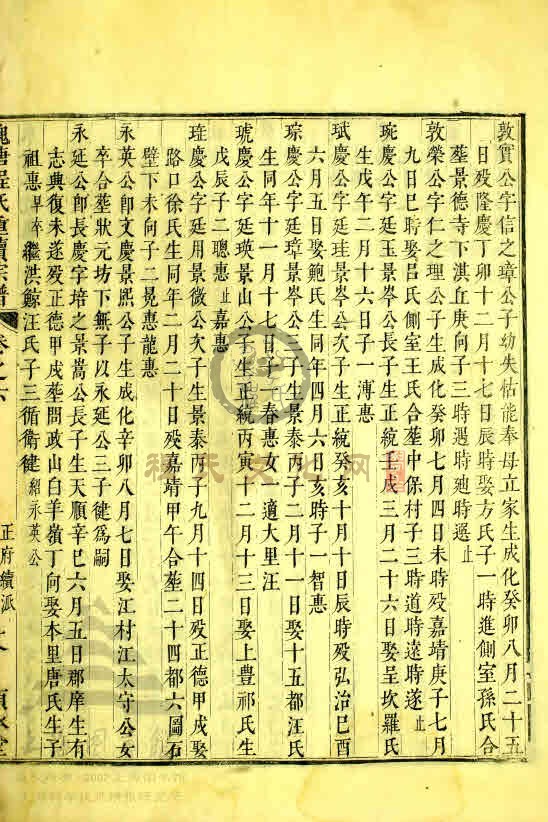 敦實公字信之璋公子幼失怙能奉母立家生成化癸卯八月二十五
日歿隆慶丁卯十二月十七日辰時娶方氏子一時進側室孫氏合
塟景德寺下淇丘庚向子三時遇時廸時暹止
敦榮公字仁之理公子生成化癸卯七月四日未時歿嘉靖庚子七月
九日巳時娶呂氏側室王氏合塟中保村子三時道時遠時遂止
琬慶公字廷玉景岑公長子生正統壬戌三月二十六日娶呈坎羅氏
生戊午二月十六日子一溥惠
珷慶公字廷珪景岑公次子生正統癸亥十月十日辰時歿弘治巳酉
六月五日娶鮑氏生同年四月六日亥時子一智惠
琮慶公字廷璋景岑公三子生景泰丙子二月十一日娶十五都汪氏
生同年十一月十七日子一春惠女一適大里汪
琥慶公字廷瑛景山公子生正統丙寅十二月十三日娶上豊祁氏生
戊辰子二聰惠止嘉惠
琟慶公字廷用景微公次子生景泰丙子九月十四日歿正德甲戌娶
路口徐氏生同年二月二十日歿嘉靖甲午合塟二十四都六圖石
壁下未向子二晃惠龍惠
永英公卽文慶景熙公子生成化辛卯八月七日娶江村江太守公女
卒合塟狀元坊下無子以永延公三子健爲嗣
永延公卽長慶字培之景嵩公長子生天順辛巳六月五日郡庠生有
志典復未遂歿正德甲戌塟問政山白羊嶺丁向娶本里唐氏生子
祖惠早卒繼洪鯨汪氏子三循衛健紹永英公
槐塘程氏重續宗譜
卷之六
正府續派